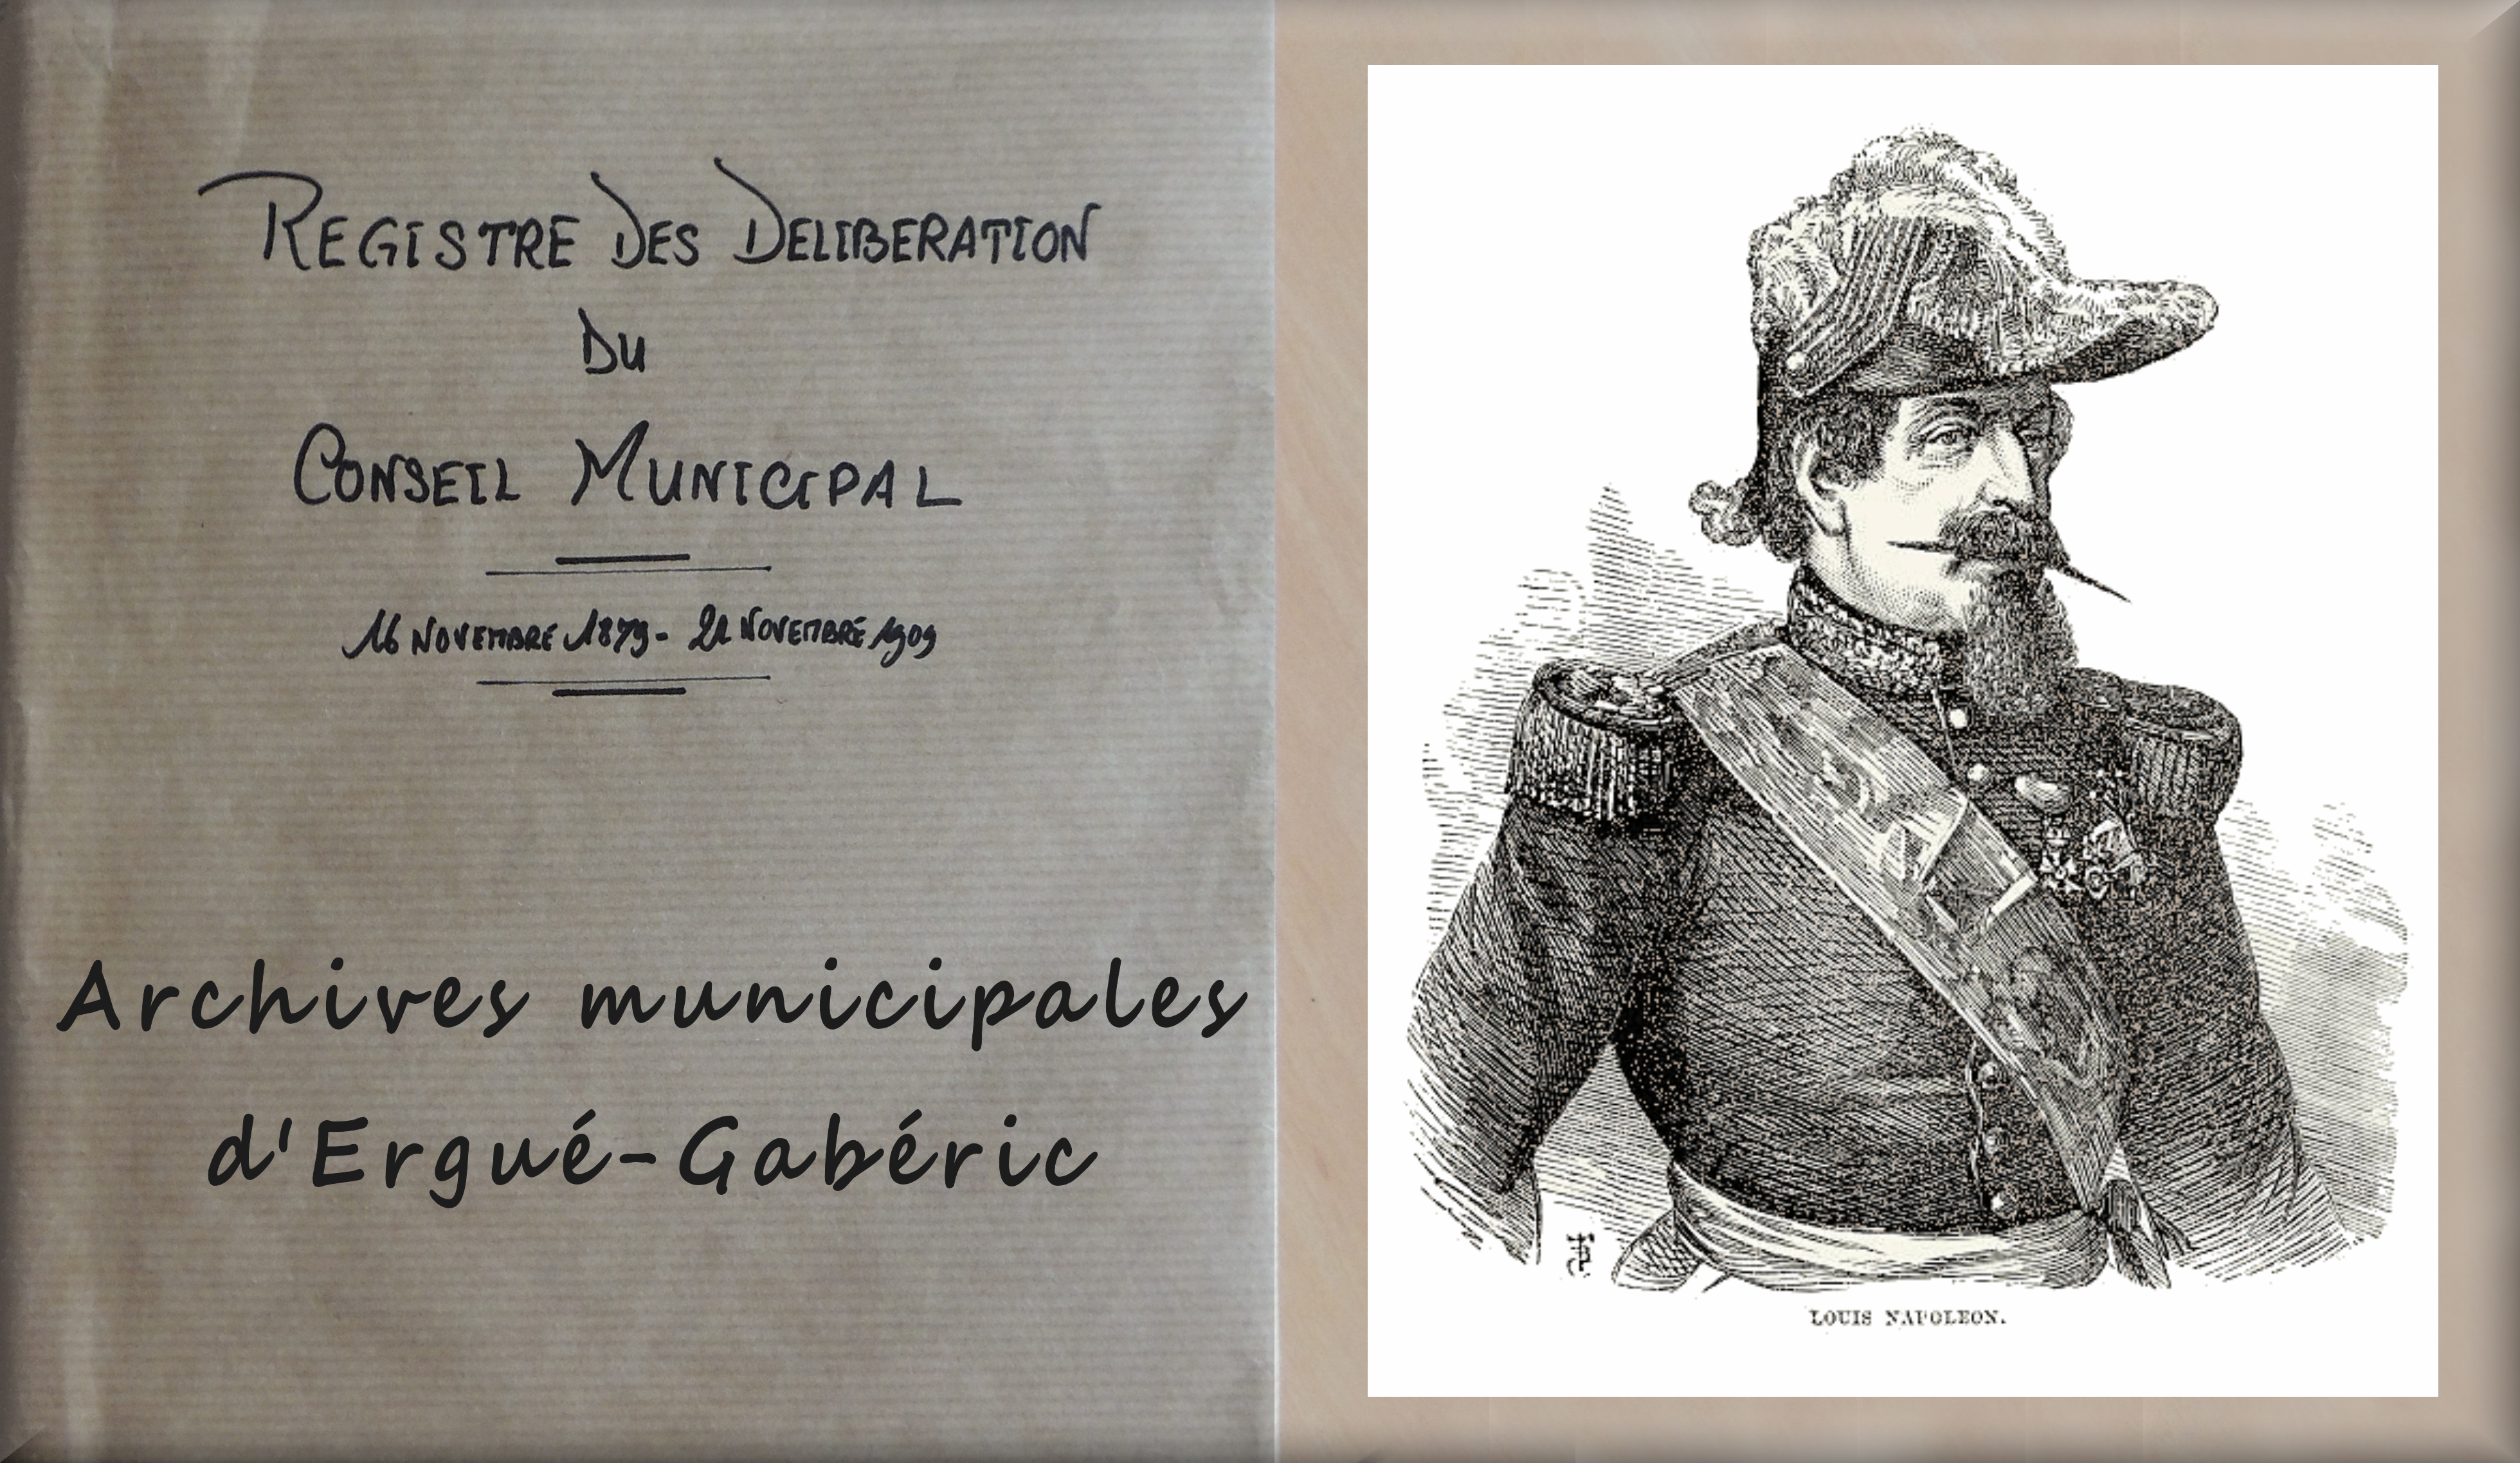 REGISTRE DES DELIBERATION
DU
CONSEIL MUNICIPAL
16 NOVEMBRE 1879 - 21 NOVEMBRE 1909
Archives municipales
d'Ergué-Gabéric
LOUIS NAPOLEON.